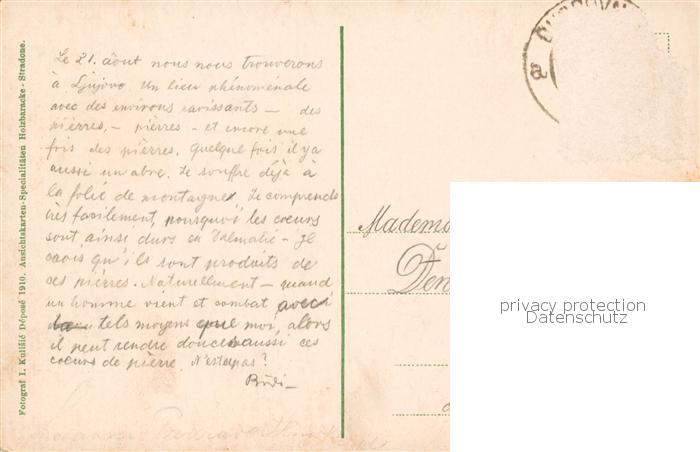 Fotograf I. Kulišić Déposé 1910. Ansichtskarten-Specialitäten Holzbaracke - Stradone.
Le 21. âout nous nous trouverons
à Gjujovo. Un lieu phénoménale
avec des environs ravissants — des
pièrres, — pièrres — et encore une
fois des pièrres. Quelque fois il ya
aussi un abre. Je souffre déjà à
la folie de montagne. Je comprends
très facilement, pourquoi les coeurs
sont ainsi durs en Dalmatie — Je
crois qu'ils sont produits de
ces pièrres. Naturellement — quand
un homme vient et combat avec
tels moyens que moi, alors
il peut rendre douce aussi ces
coeurs de pierre. N'estcepas?
Madem
Fen
privacy protection
Datenschutz